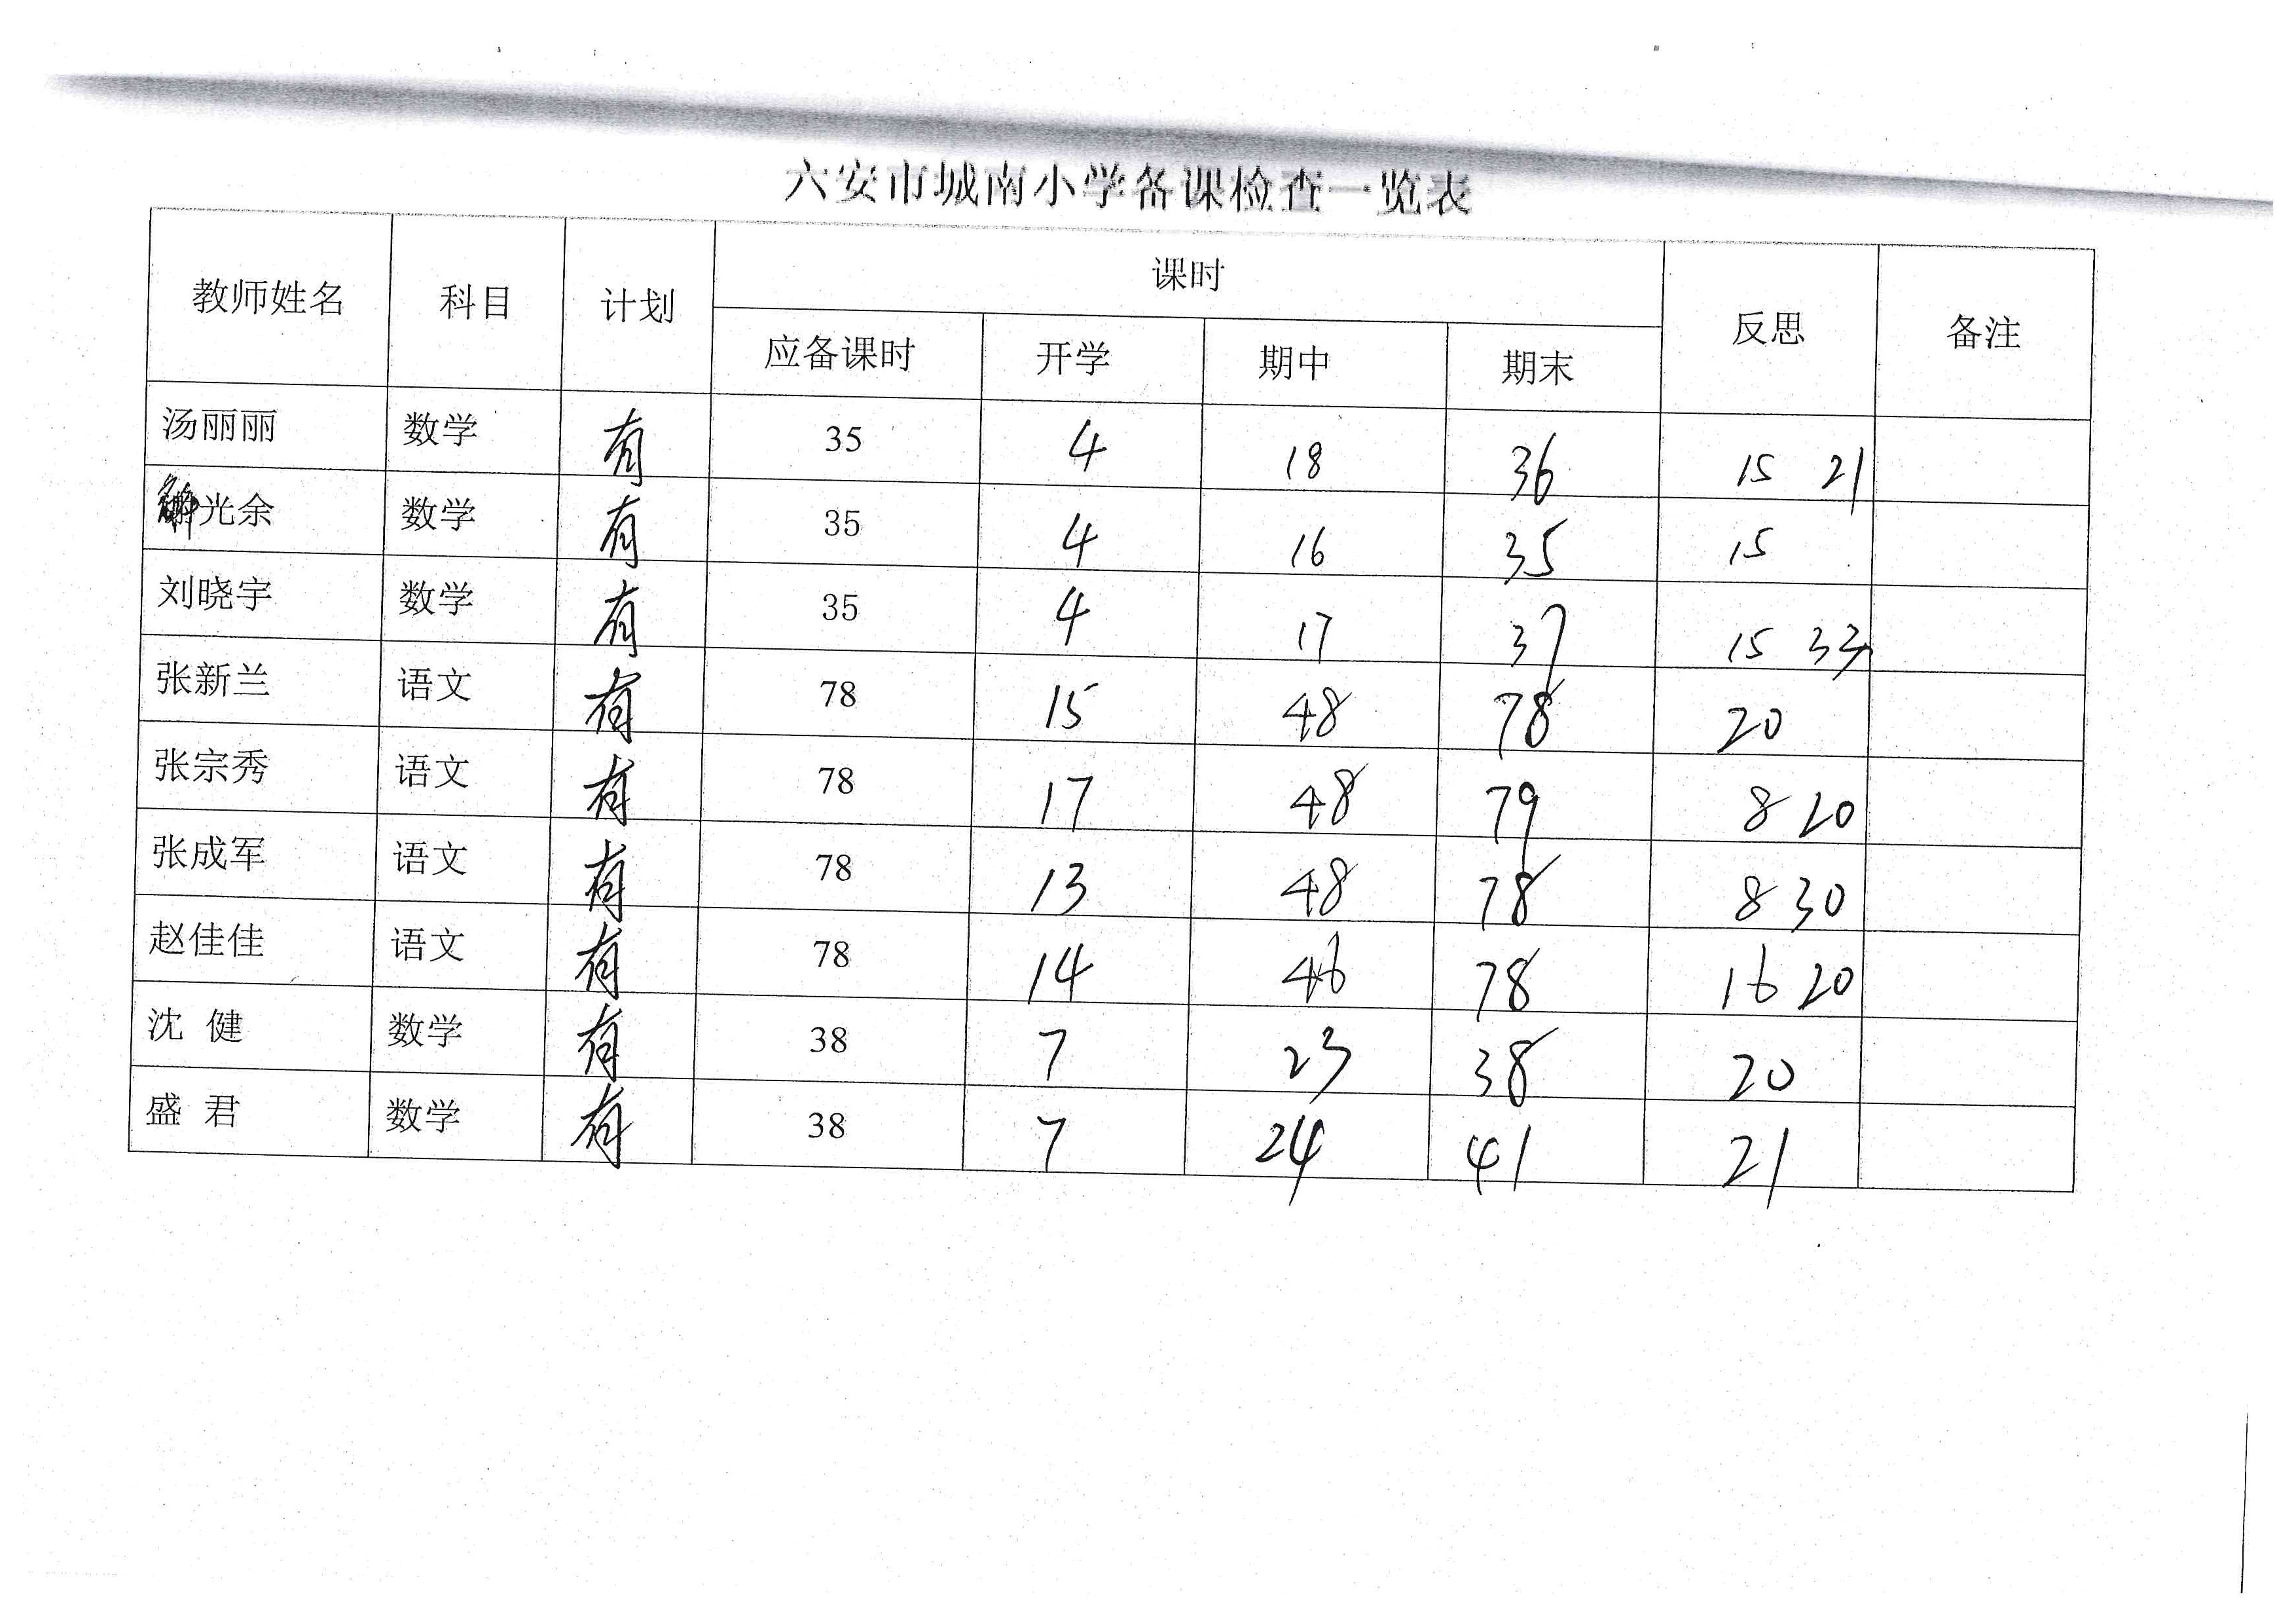 六安市城南小学备课检查一览表
教师姓名 科目 计划 课时 反思 备注
应备课时 开学 期中 期末
汤丽丽 数学 有 35 4 18 36 15 21
光余 数学 有 35 4 16 35 15
刘晓宇 数学 有 35 4 17 37 15 33
张新兰 语文 有 78 15 48 78 20
张宗秀 语文 有 78 17 48 79 8 20
张成军 语文 有 78 13 48 78 8 30
赵佳佳 语文 有 78 14 46 78 16 20
沈 健 数学 有 38 7 23 38 20
盛 君 数学 有 38 7 24 41 21